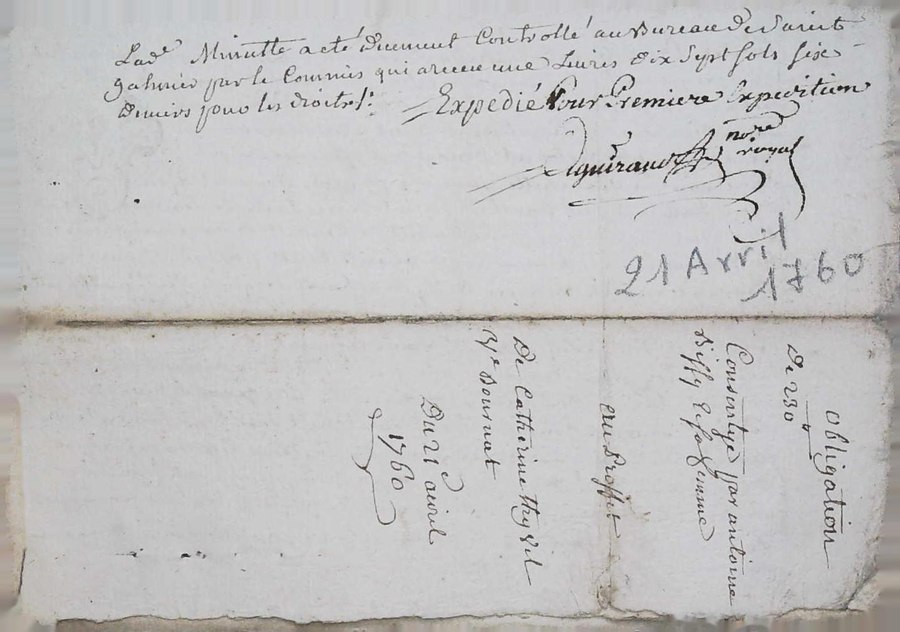 Lad.e Minutte a eté Duement Controllé au Bureau De Saint
galmier par le Commis qui a receu une Livres Dix Sept sols six
Deniers pour les droits
Expedié Pour Premiere Expedition
no.re royal
21 Avril
1760
obligation
De 230
Consentye par antoine
Biffy et sa femme
au Proffit
De Catherine
V.e Dournat
Du 21 avril
1760